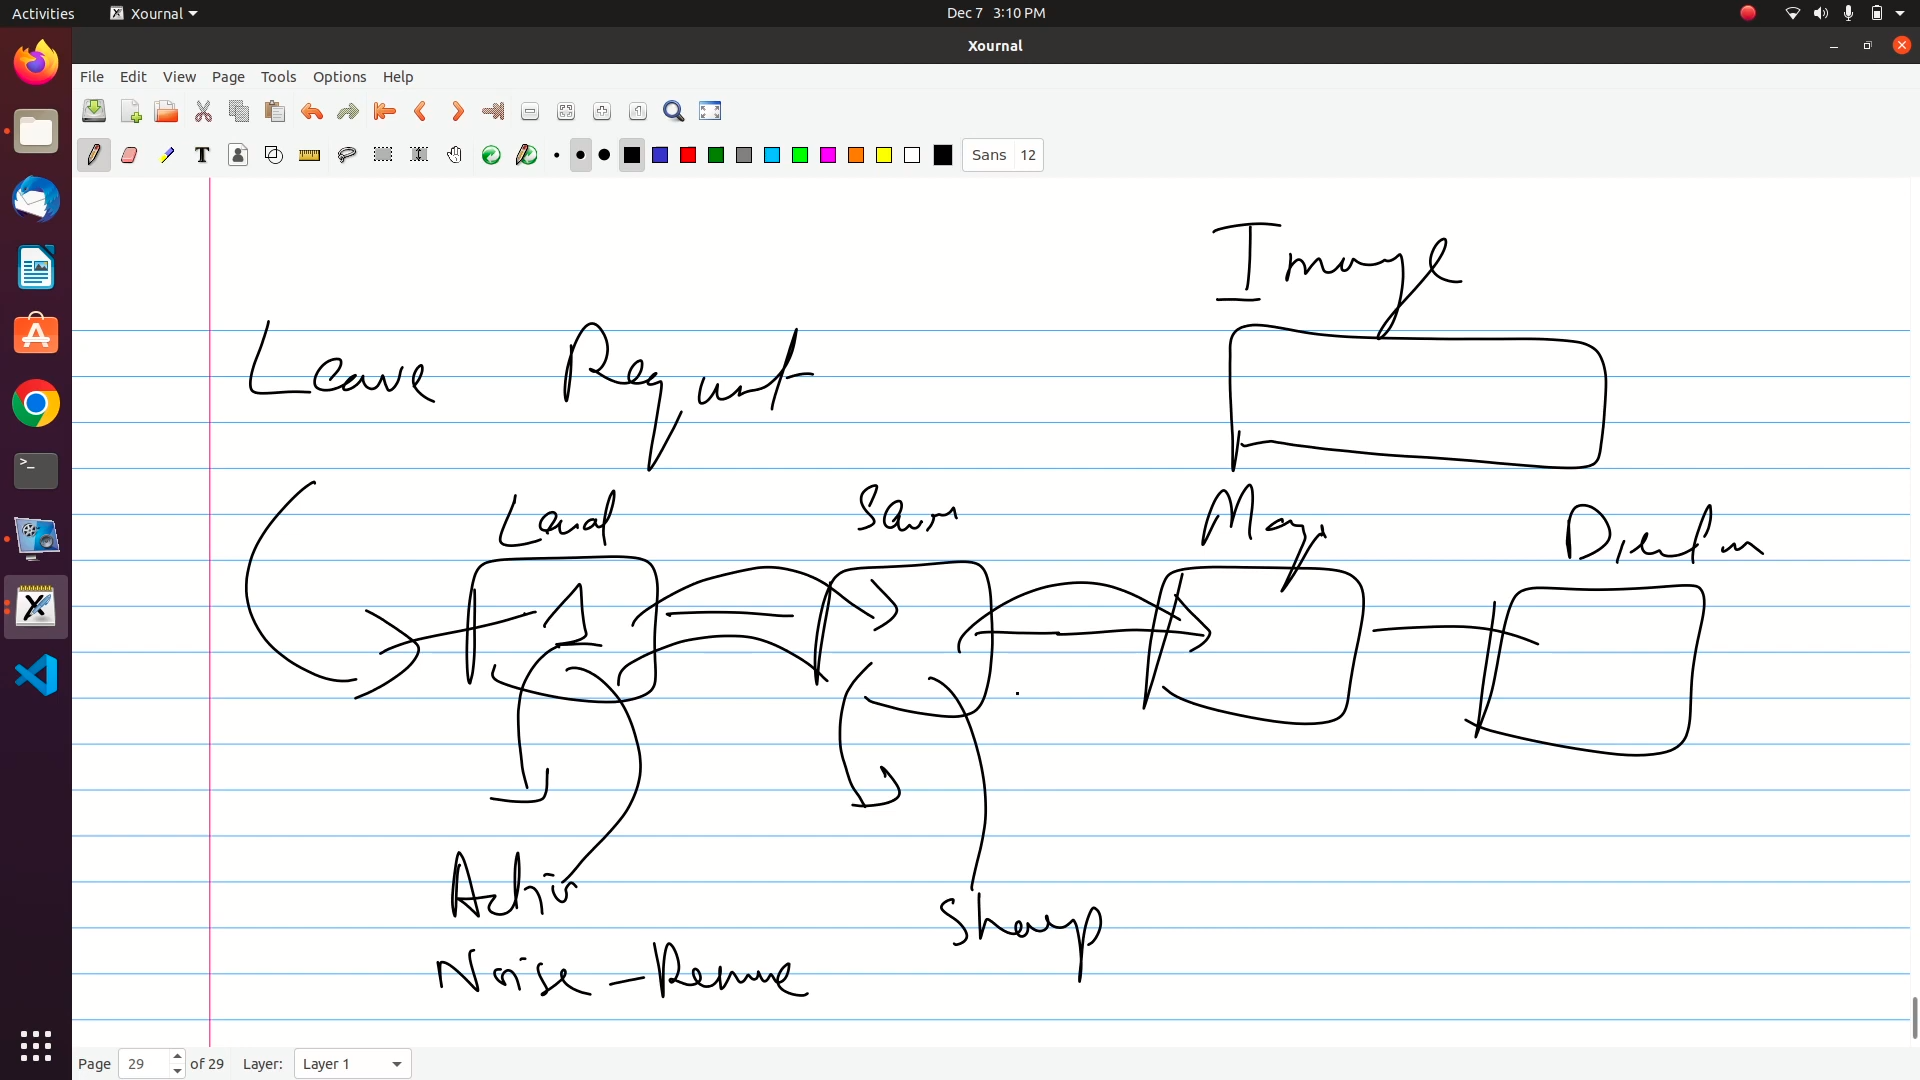 Activities Xournal Dec 7 3:10 PM
Xournal
File Edit View Page Tools Options Help
T Sans 12
Image
Leave Request
Lead
Noise - Remove
Sharp
Page 29 of 29 Layer: Layer 1